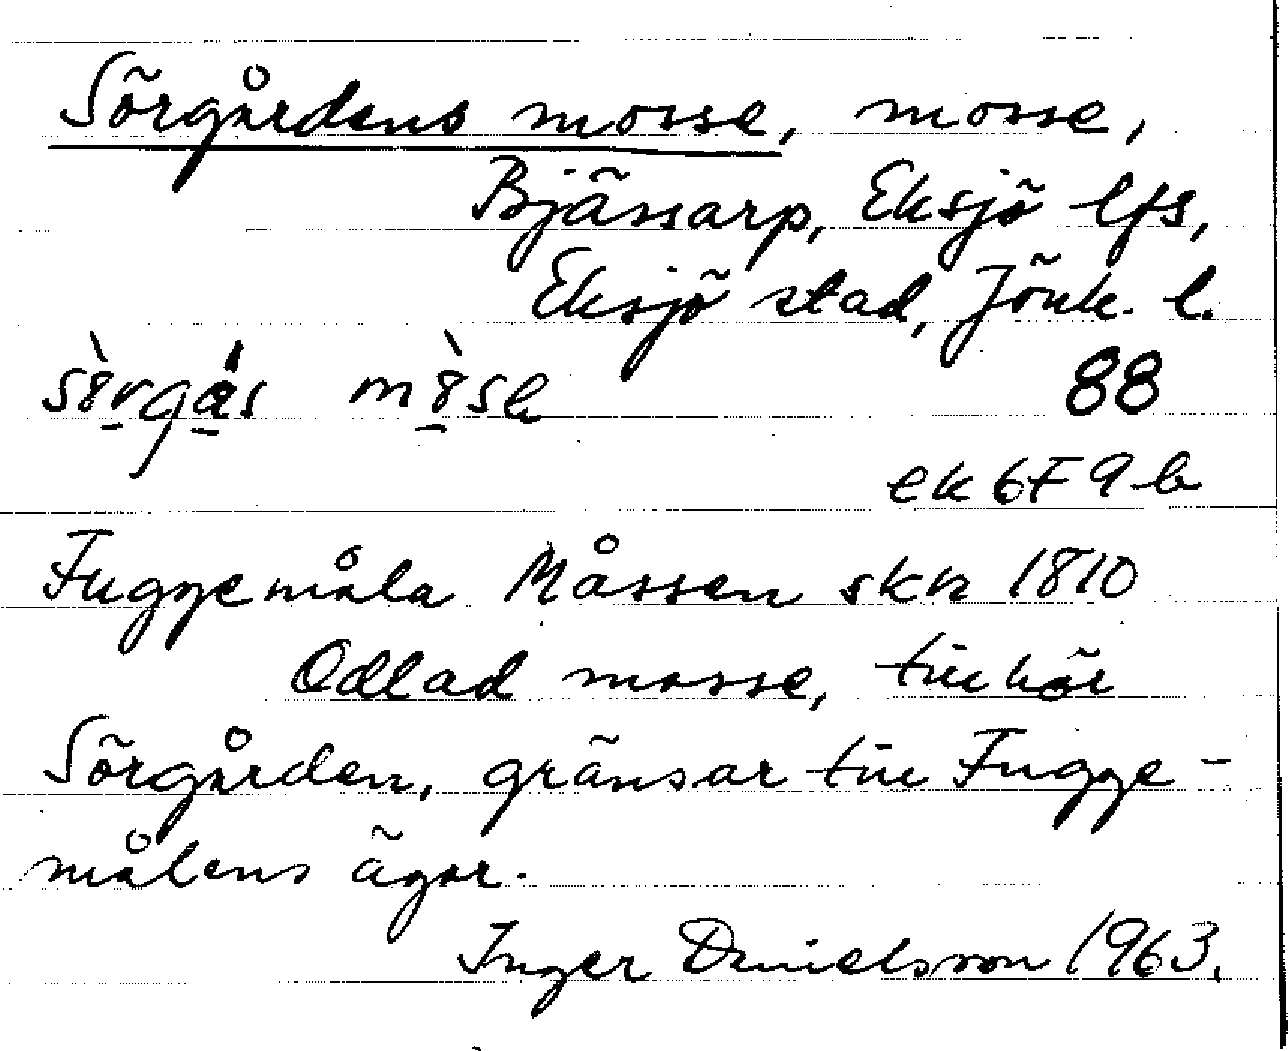 Sörgårdens mosse, mosse,
Bjässarp, Eksjö lfs,
Eksjö stad, Jönk. l.
88
ek 6F 9 b
Fuggemåla Måssen skh 1810
Odlad mosse, tillhör
Sörgården, gränsar till Fugge-
målens ägor.
Inger Danielsson 1963.